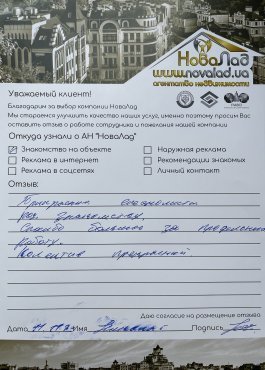 НоваЛад
www.novalad.ua
агентство недвижимости
Уважаемый клиент!
Благодарим за выбор компании НоваЛад
Мы стараемся улучшить качество наших услуг, именно поэтому просим Вас
оставить отзыв о работе сотрудника и пожелания нашей компании
Откуда узнали о АН "НоваЛад"
Знакомство на объекте
Наружная реклама
Реклама в интернет
Рекомендации знакомых
Реклама в соцсетях
Личный контакт
Отзыв:
Прекрасные специалисты
Спасибо большое за
работу.
Колектив прекрасный
Даю согласие на размещение отзыва
Дата Имя Подпись